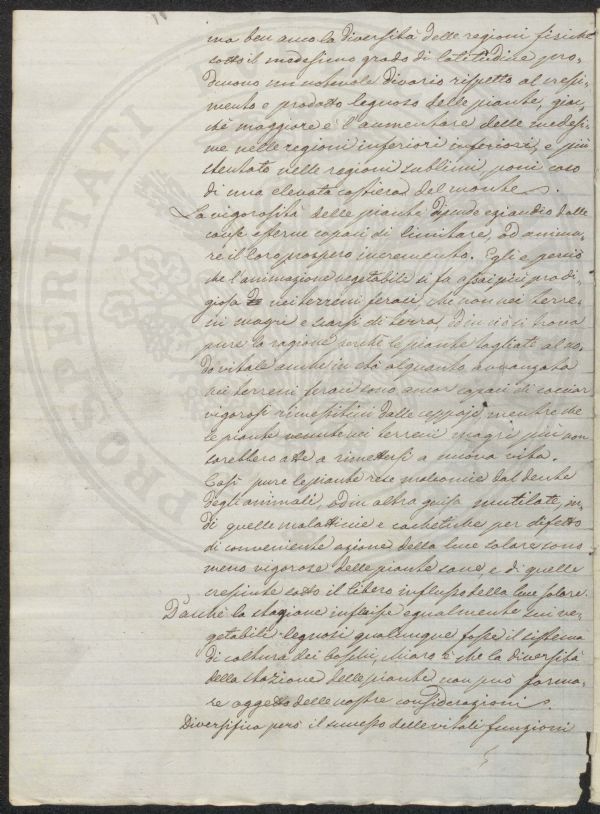 ma ben anco la diversità delle regioni fisiche
sotto il medesimo grado di latitudine pro-
ducono un notevole divario rispetto al cresci-
mento e prodotto legnoso delle piante, giac-
chè maggiore è l'aumentare delle medesi-
me nelle regioni inferiori, e più
stentato nelle regioni sublimi, poni caso
di una elevata costiera del monte.
La vigorosità delle piante dipende eziandio dalle
cause esterne capaci di limitare, od anima-
re il loro prospero incremento. Egli è perciò
che l'animazione vegetabile si fa assai più prodi-
giosa nei terreni feraci, che non nei terre-
ni magri e scarsi di terra, ed in ciò si trova
pure la ragione perchè le piante tagliate al no-
do vitale anche in età alquanto avanzata
nei terreni feraci sono ancor capaci di cacciar
vigorosi rimessiticci dalle ceppaje, mentre che
le piante venute nei terreni magri più non
sarebbero atte a rimettersi a nuova vita.
Così pure le piante rese malconcie dal dente
degli animali, od in altra guisa mutilate, in-
di quelle malatticcie e cachetiche per difetto
di conveniente azione della luce solare sono
meno vigorose delle piante sane, e di quelle
cresciute sotto il libero influsso della luce solare.
Dacchè la stagione influisce egualmente sui ve-
getabili legnosi qualunque fosse il sistema
di coltura dei boschi, chiaro è che la diversità
della stazione delle piante non può forma-
re oggetto delle nostre considerazioni.
Diversifica però il successo delle vitali funzioni
PROSPERITATI